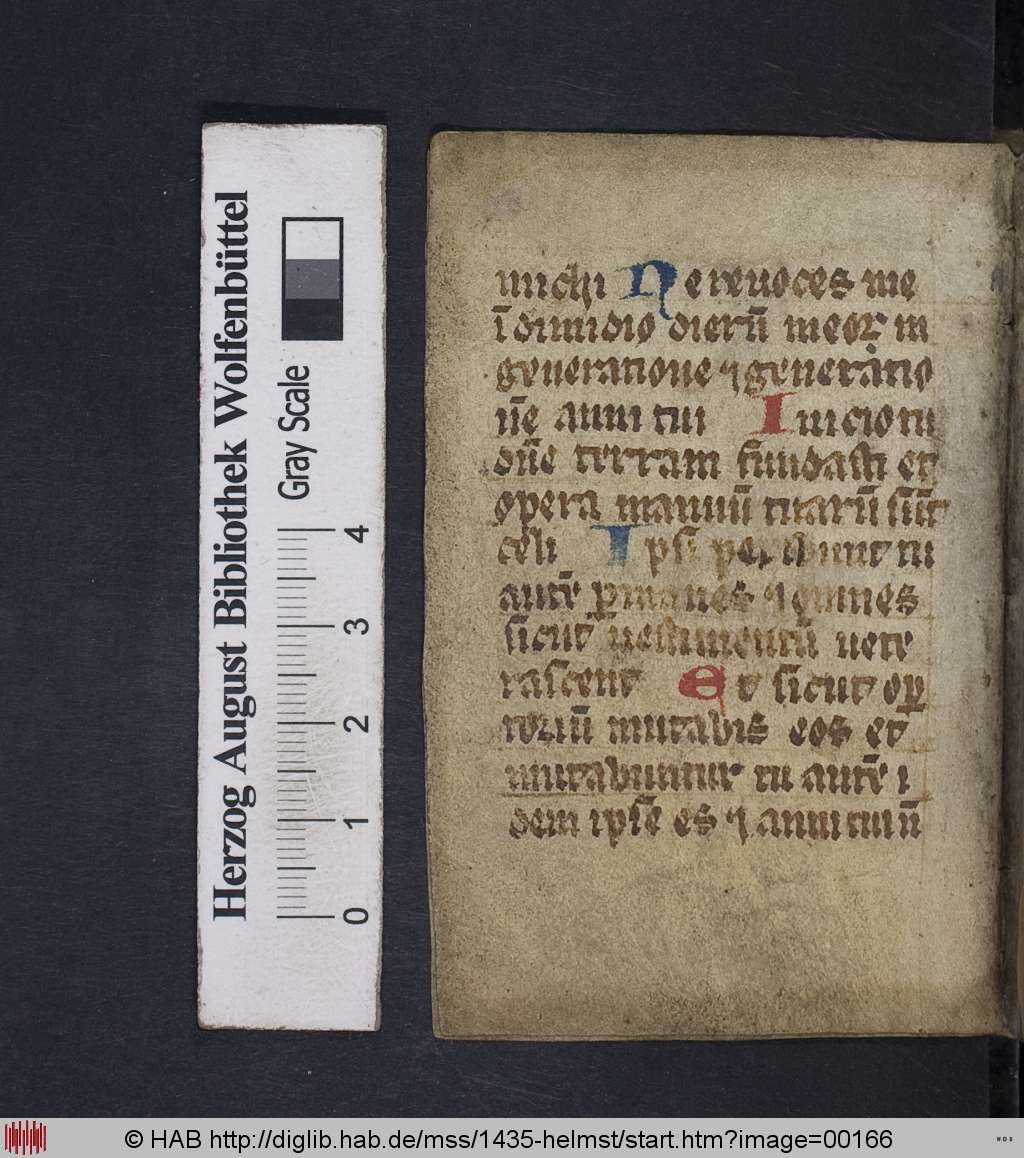 michi Ne reuoces me
ī dimidio dierū meoꝝ in
generatione ⁊ generatio
nē anni tui Inicio tu
dn̄e terram fundasti et
opera manuū tuarū sūt
celi Ipsi peribunt tu
autē ꝑmanes ⁊ om̄nes
sicut uestimentū uete
rascent Et sicut oꝑ
toriū mutabis eos et
mutabuntur tu autē i
dem ipse es ⁊ anni tui n̄
Herzog August Bibliothek Wolfenbüttel
Gray Scale
0 1 2 3 4
© HAB http://diglib.hab.de/mss/1435-helmst/start.htm?image=00166